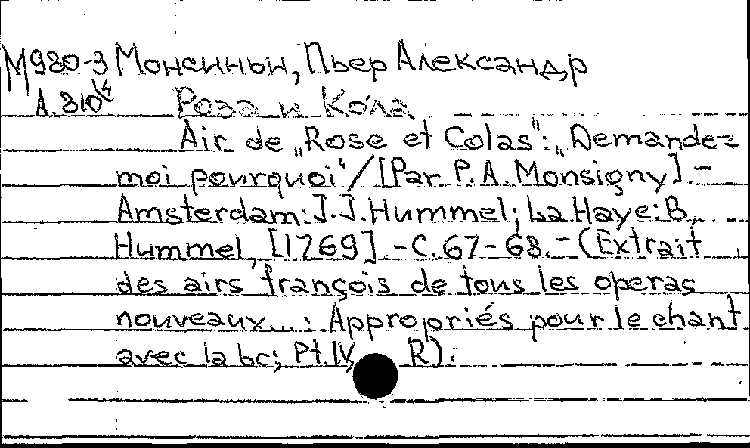 М980-3 Монсиньи, Пьер Александр
А.310 Роза и Кола
Air de „Rose et Colas": „Demande-
moi pourquoi"/[Par P.A.Monsigny].-
Amsterdam: J.J.Hummel; La Haye: B.
Hummel, [1769].-С.67-68.-(Extrait
des airs françois de tous les operas
nouveaux...: Appropriés pour le chant
avec la bc; Pt.IV, R).